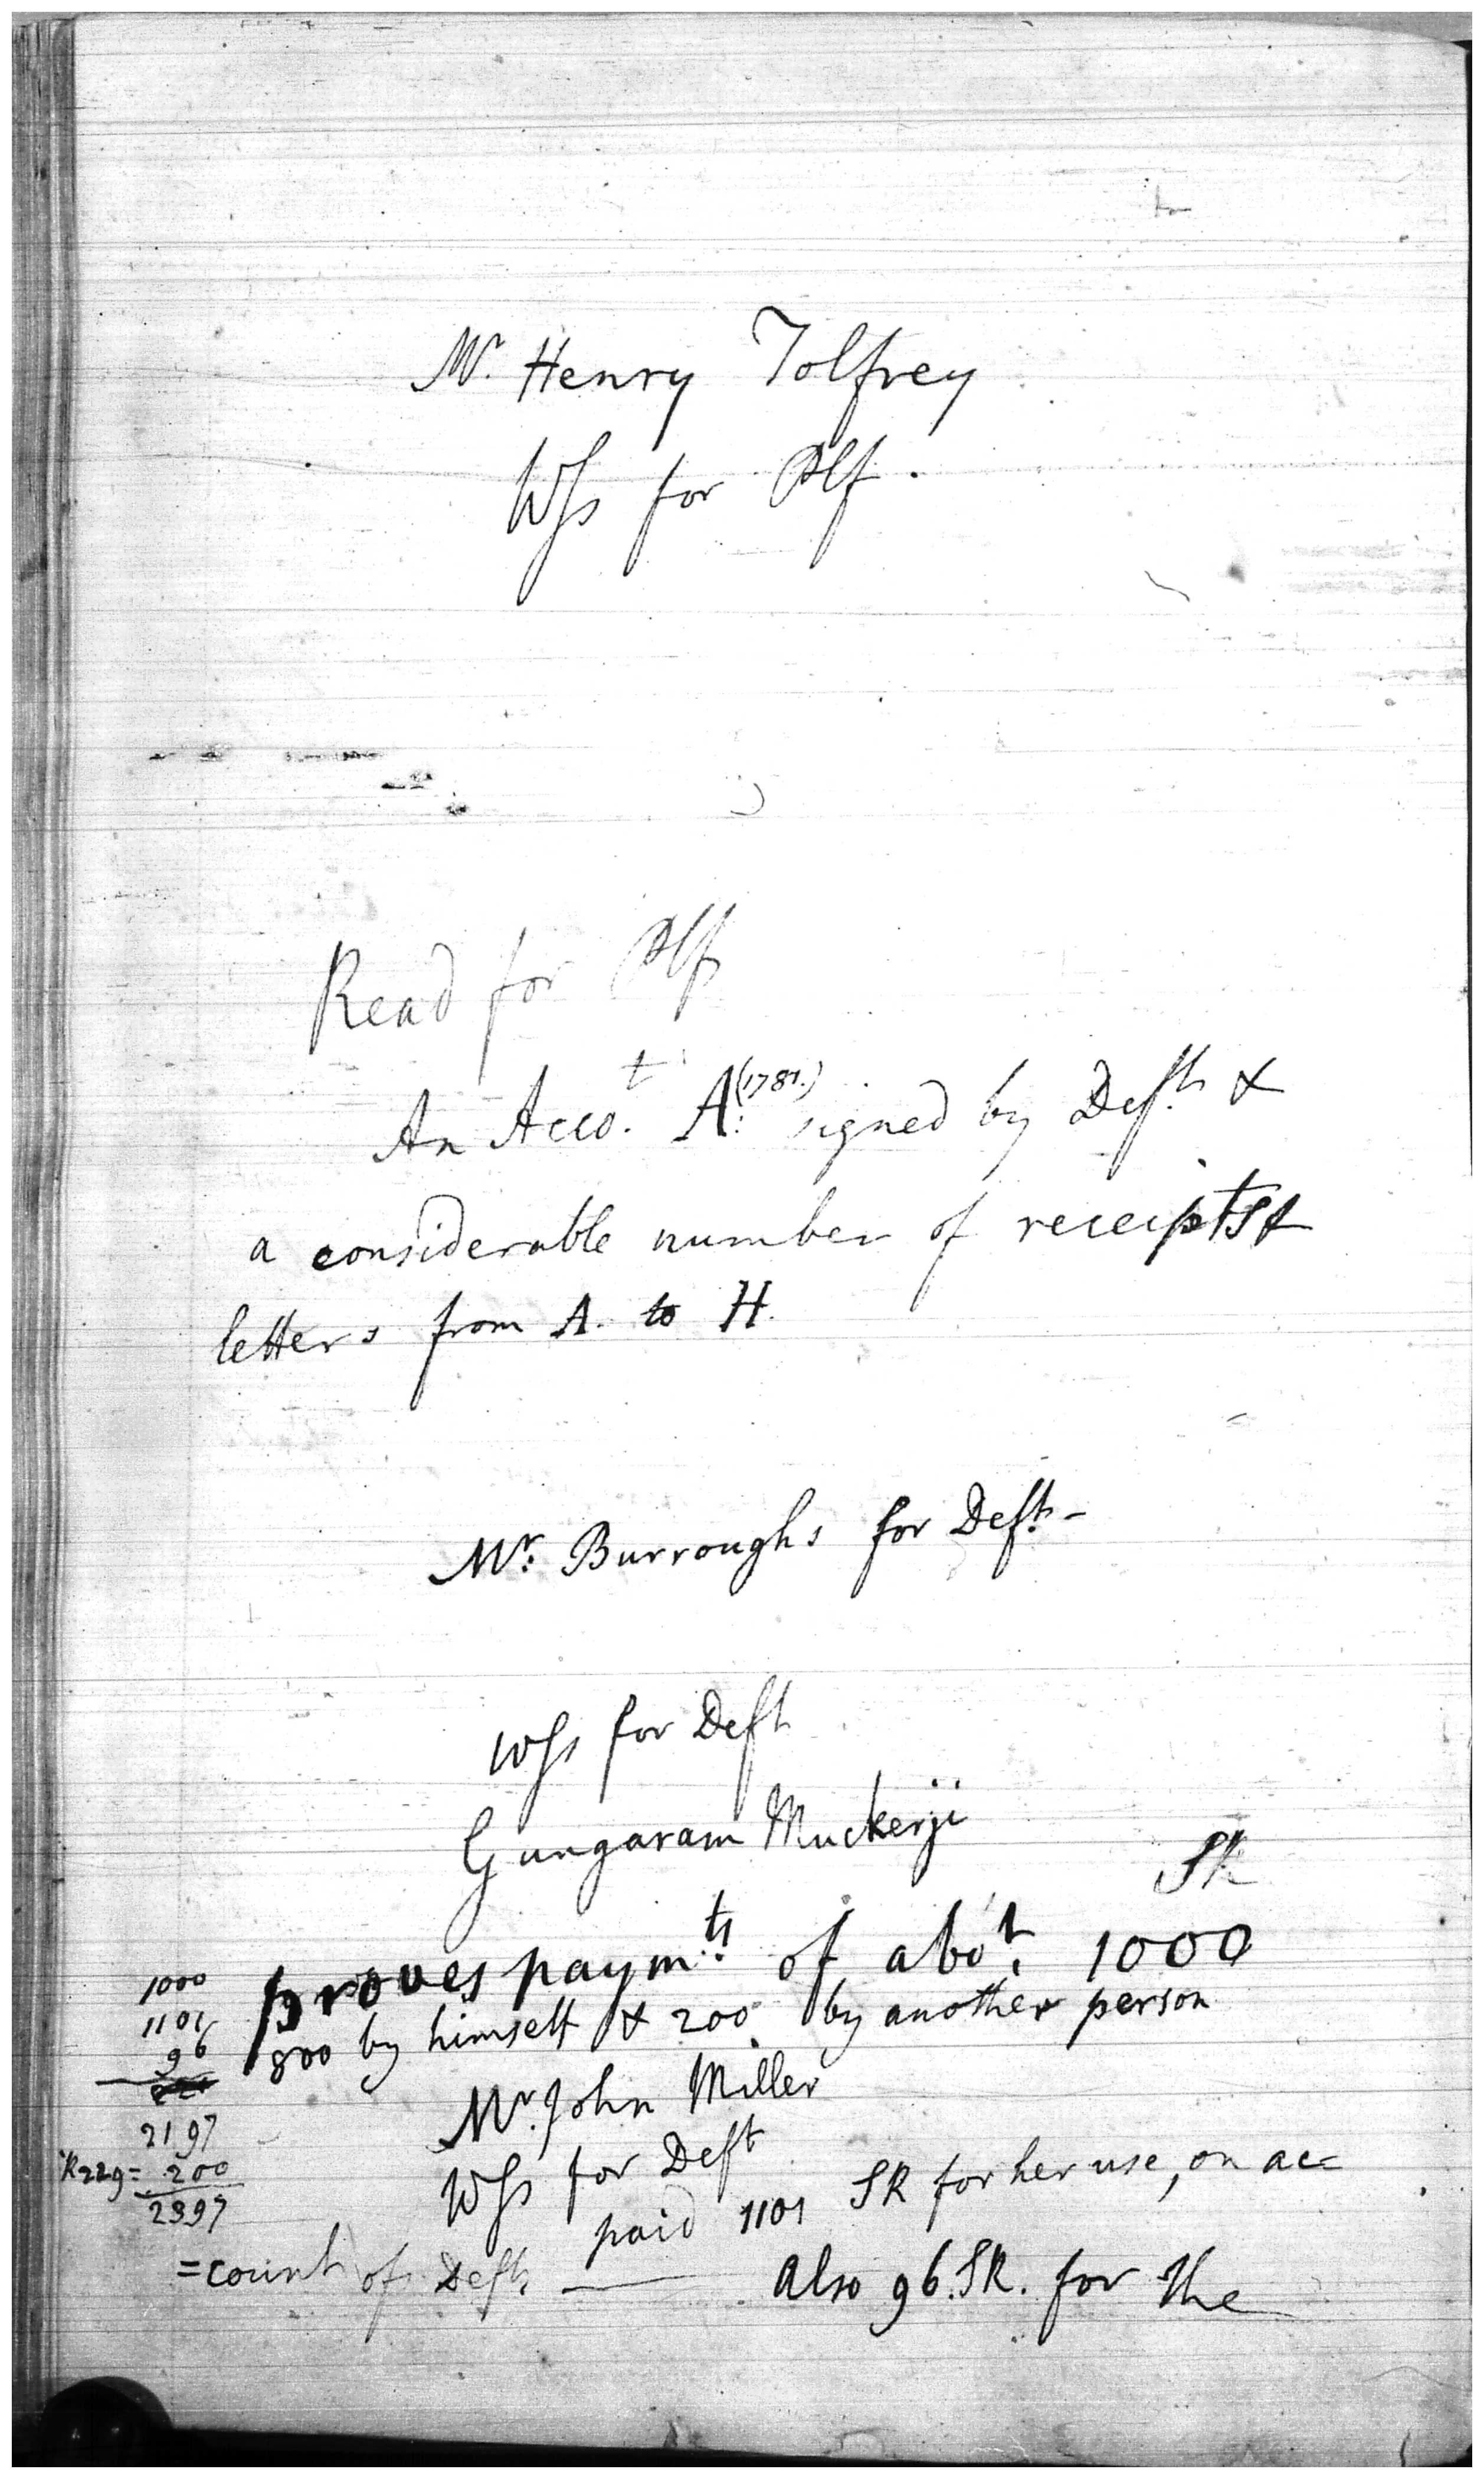 Mr. Henry Tolfrey
Wss for Plf.
Read for Plf
An Acco.t A: (1781.) signed by Deft. &
a considerable number of receipts &
letters from A. to H.
Mr. Burroughs for Deft. -
Wss for Deft
Gungaram Muckerji
SR
proves paym.ts of abo.t 1000
800 by himself & 200 by another person
1000
1101
96
2197
200
2397
Mr. John Miller
Wss for Deft
paid 1101 SR for her use, on ac=
=count of Deft. — Also 96. SR. for the